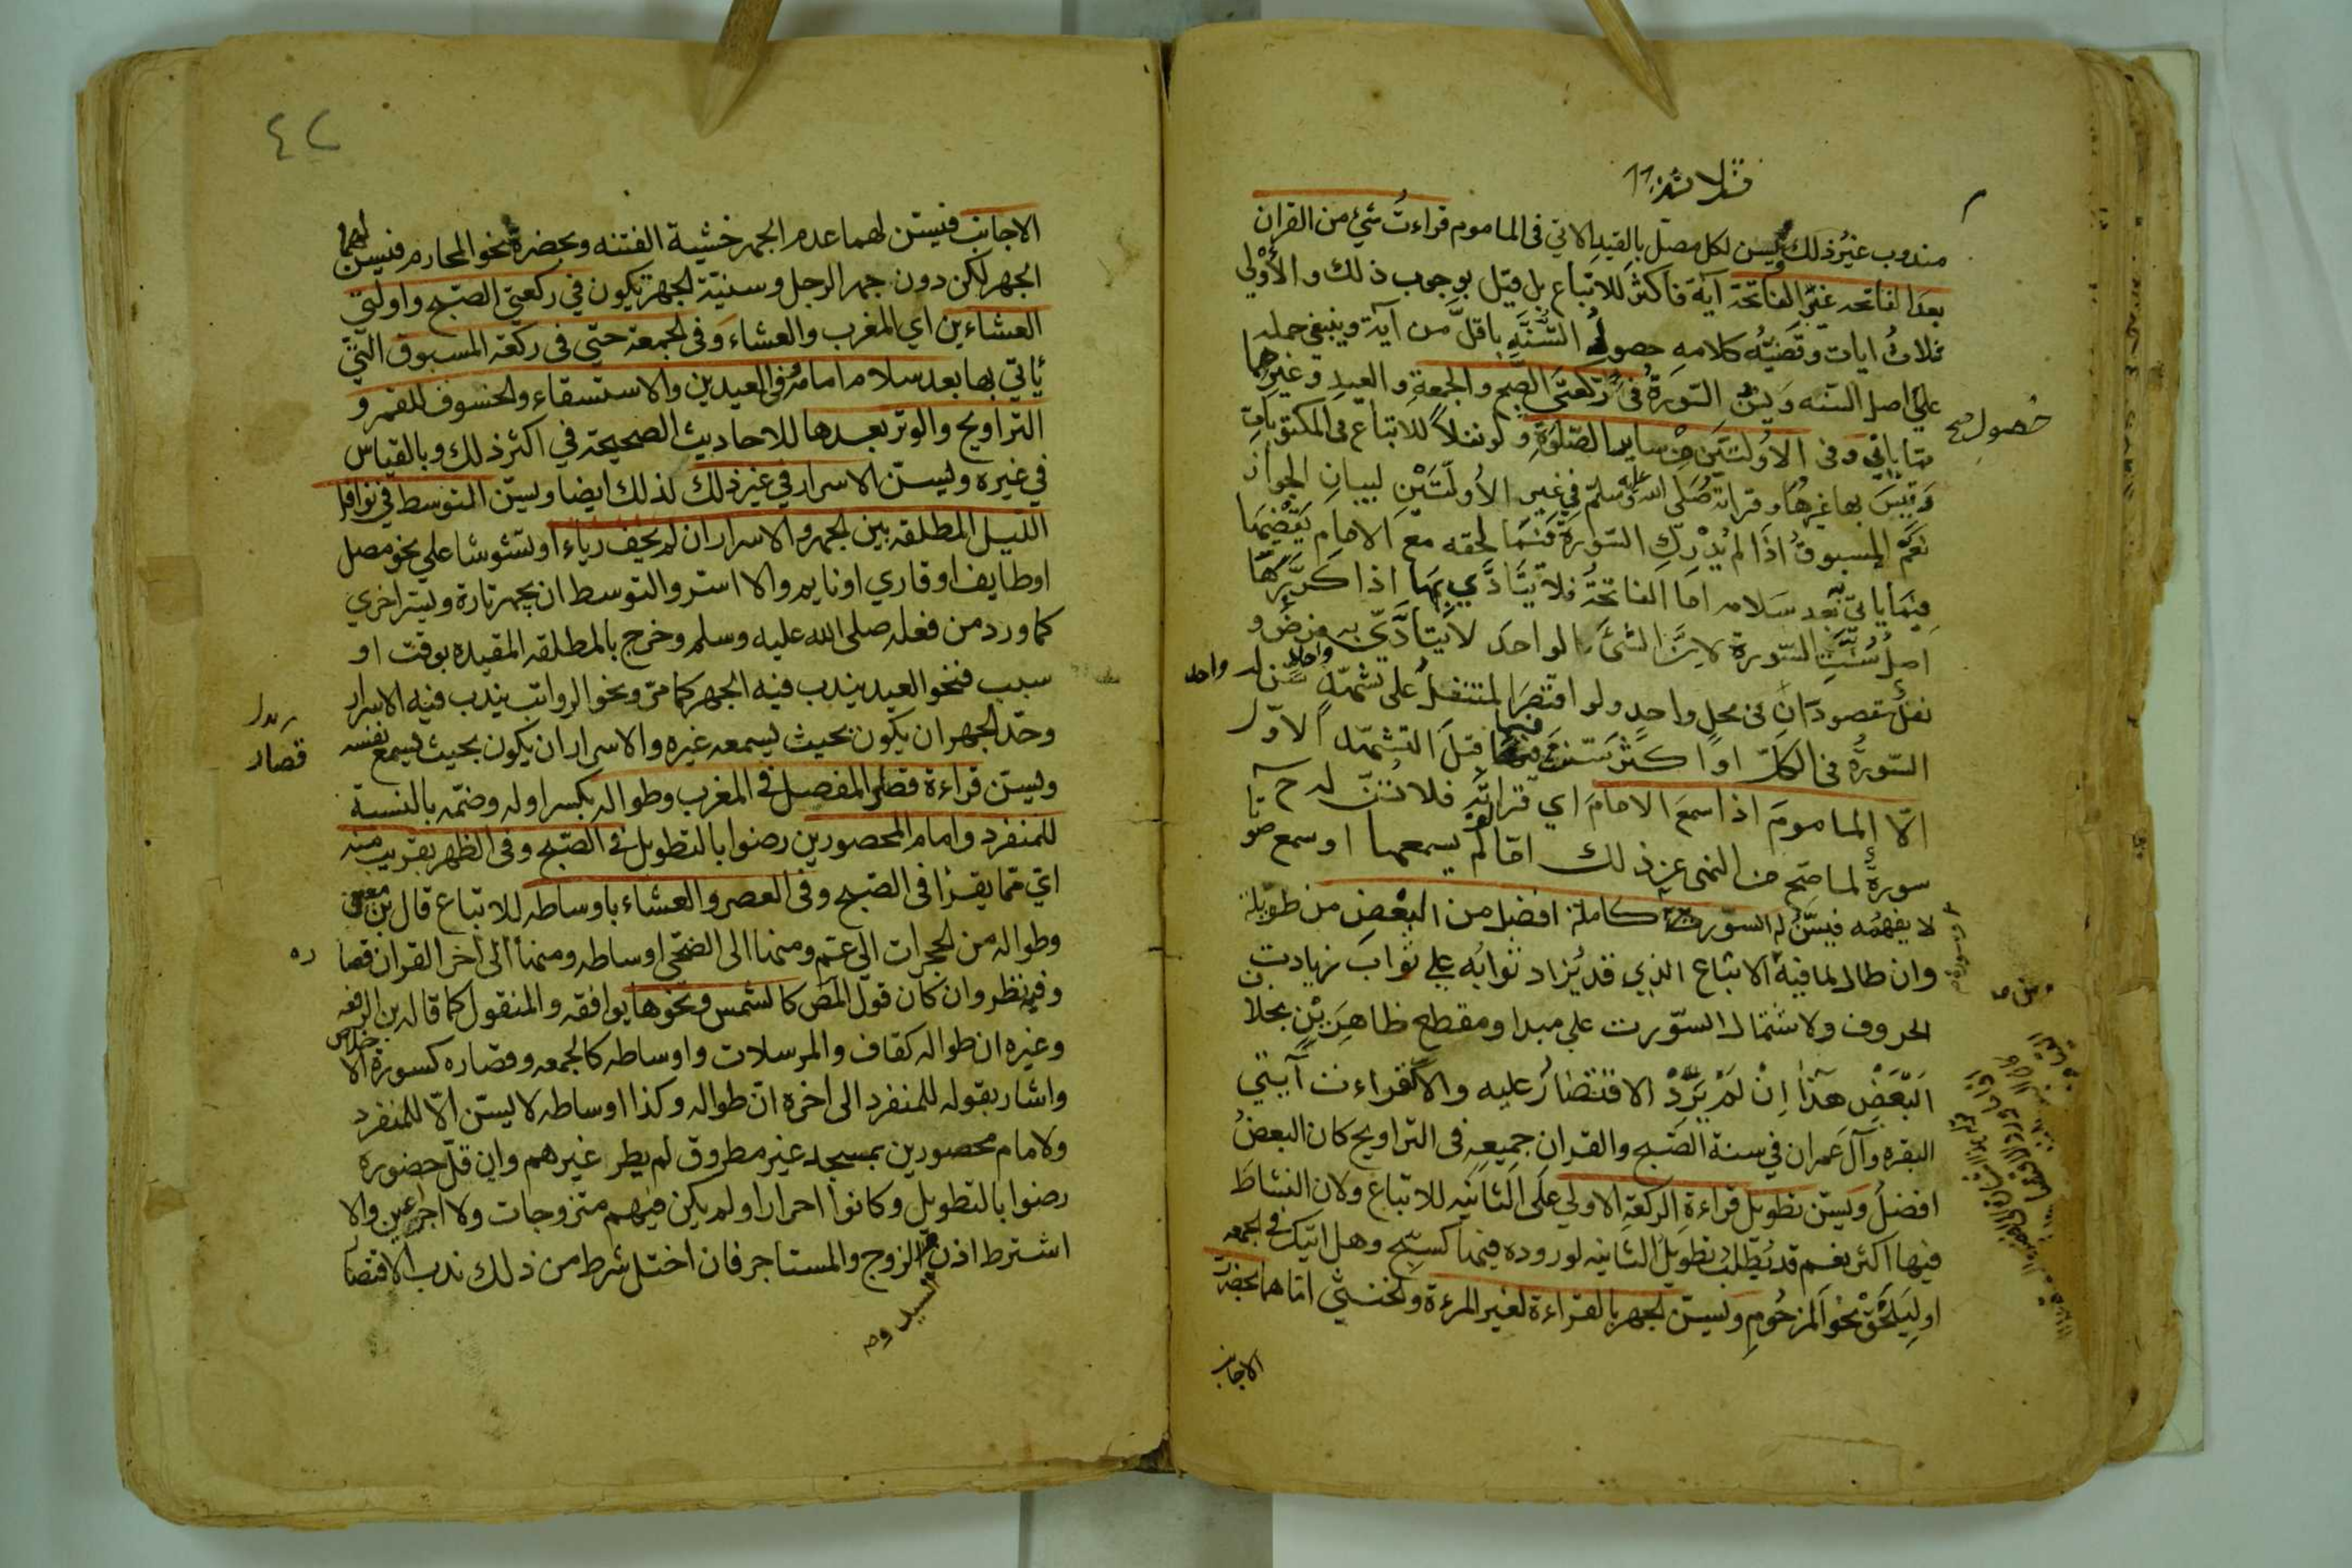 مندوب غير ذلك ويسن لكل مصل بالقيد الاتي في الماموم قراءت شيء من القران
بعد الفاتحه غير الفاتحة آية فاكثر للاتباع بل قيل بوجوب ذلك والأولى
ثلاث ايات وقضيّه كلامه حصول السُّنَّه باقلَّ من آية وينبغي حمله
علي اصل السنه ويسنّ السّورة في ركعتي الصّبح والجمعة والعيد وغيرهما
حصول صح
مما ياتي وفي الاُوليتين من ساير الصّلوة ولو نفلاً للاتباع في المكتوبات
وقيس بها غيرها وقراته صلى الله عليه وسلم في غير الأوليتين لبيان الجواز
نعم المسبوق اذا لم يدرك السّورة فيما لحقه مع الامام يقضيها
فيما ياتي به بعد سلامه اما الفاتحة فلا يتادّي بها اذا كرّرها
اصل سُنّت السّورة لانّ الشئ الواحد لا يتادّي به فرض و
نفل مقصودان في محل واحد ولو اقتصر المتنفل على تشهّد سن له واحد
السّورة في الكلّ او اكثر سنت فيما قبل التشهّد الاوّل
الّا الماموم اذا سمع الامام اي قراته فلا تسنّ له ح
سورة لما صح من النهي عن ذلك امّا لم يسمعها او سمع صوتا
لا يفهمه فيسنّ له السّورت كاملة افضل من البعض من طويلة
وان طال لما فيه الاتباع الذي قد يزاد ثوابه علي ثواب زيادت
الحروف ولاشتمال السّورت علي مبدا ومقطع ظاهرين بخلاف
البعض هذا ان لم يرد الاقتصار عليه والا كقراءت آيتي
البقره وآل عمران في سنة الصّبح والقران جميعه في التراويح كان البعض
افضل ويسنّ تطويل قراءة الركعة الاولي علي الثانيه للاتباع ولان النشاط
فيها اكثر نعم قد يطلب تطويل الثانيه لوروده فيهما كسبّح وهل اتيك في الجمعه
او ليلحق نحو المزحوم ويسنّ الجهر بالقراءة لغير المرءة والخنثي امّا هما بحضرت
الاجانب
٤٢
الاجانب فيسن لهما عدم الجهر خشية الفتنه وبحضرة نحو المحارم فيسن لهما
الجهر لكن دون جهر الرجل وسنيّة الجهر يكون في ركعتي الصّبح واولتي
العشاءين اي المغرب والعشاء وفي الجمعة حتّي في ركعة المسبوق التي
ياتي بها بعد سلام امامه وفي العيدين والاستسقاء والخسوف للقمر و
التراويح والوتر بعدها للاحاديث الصحيحة في اكثر ذلك وبالقياس
في غيره ويسنّ الاسرار في غير ذلك لذلك ايضا ويسنّ التوسط في نوافل
الليل المطلقه بين الجهر والاسرار ان لم يخف رياء او تشوشا علي نحو مصل
او طايف او قاري او نايم والا اسر والتوسط ان يجهر تارة ويسر اخري
كما ورد من فعله صلى الله عليه وسلم وخرج بالمطلقه المقيده بوقت او
سبب فنحو العيد يندب فيه الجهر كما مرّ ونحو الرواتب يندب فيه الاسرار
وحدّ الجهر ان يكون بحيث يسمعه غيره والاسرار ان يكون بحيث يسمع نفسه
قصار
ويسنّ قراءة قصار المفصل في المغرب وطواله بكسر اوله وضمّه بالنسبة
للمنفرد وامام المحصورين رضوا بالتطويل في الصّبح وفي الظهر بقريب منه
اي ممّا يقرأ في الصّبح وفي العصر والعشاء باوساطه للاتباع قال بن معن
وطواله من الحجرات الي عمّ ومنها الى الضحي اوساطه ومنها الى اخر القران قصاره
وفيه نظر وان كان قول المص كالشمس ونحوها يوافقه والمنقول كما قاله بن الرفعه
وغيره ان طواله كقاف والمرسلات واوساطه كالجمعه وقصاره كسورة الاخلاص
واشار بقوله للمنفرد الى اخره ان طواله وكذا اوساطه لا يسنّ الّا للمنفرد
ولامام محصورين بمسجد غير مطروق لم يطر غيرهم وان قلّ حضوره
رضوا بالتطويل وكانوا احرارا ولم يكن فيهم متزوجات ولا اجراء عين والا
اشترط اذن الزوج والمستاجر فان اختل شرط من ذلك ندب الاقتصا
السيد و